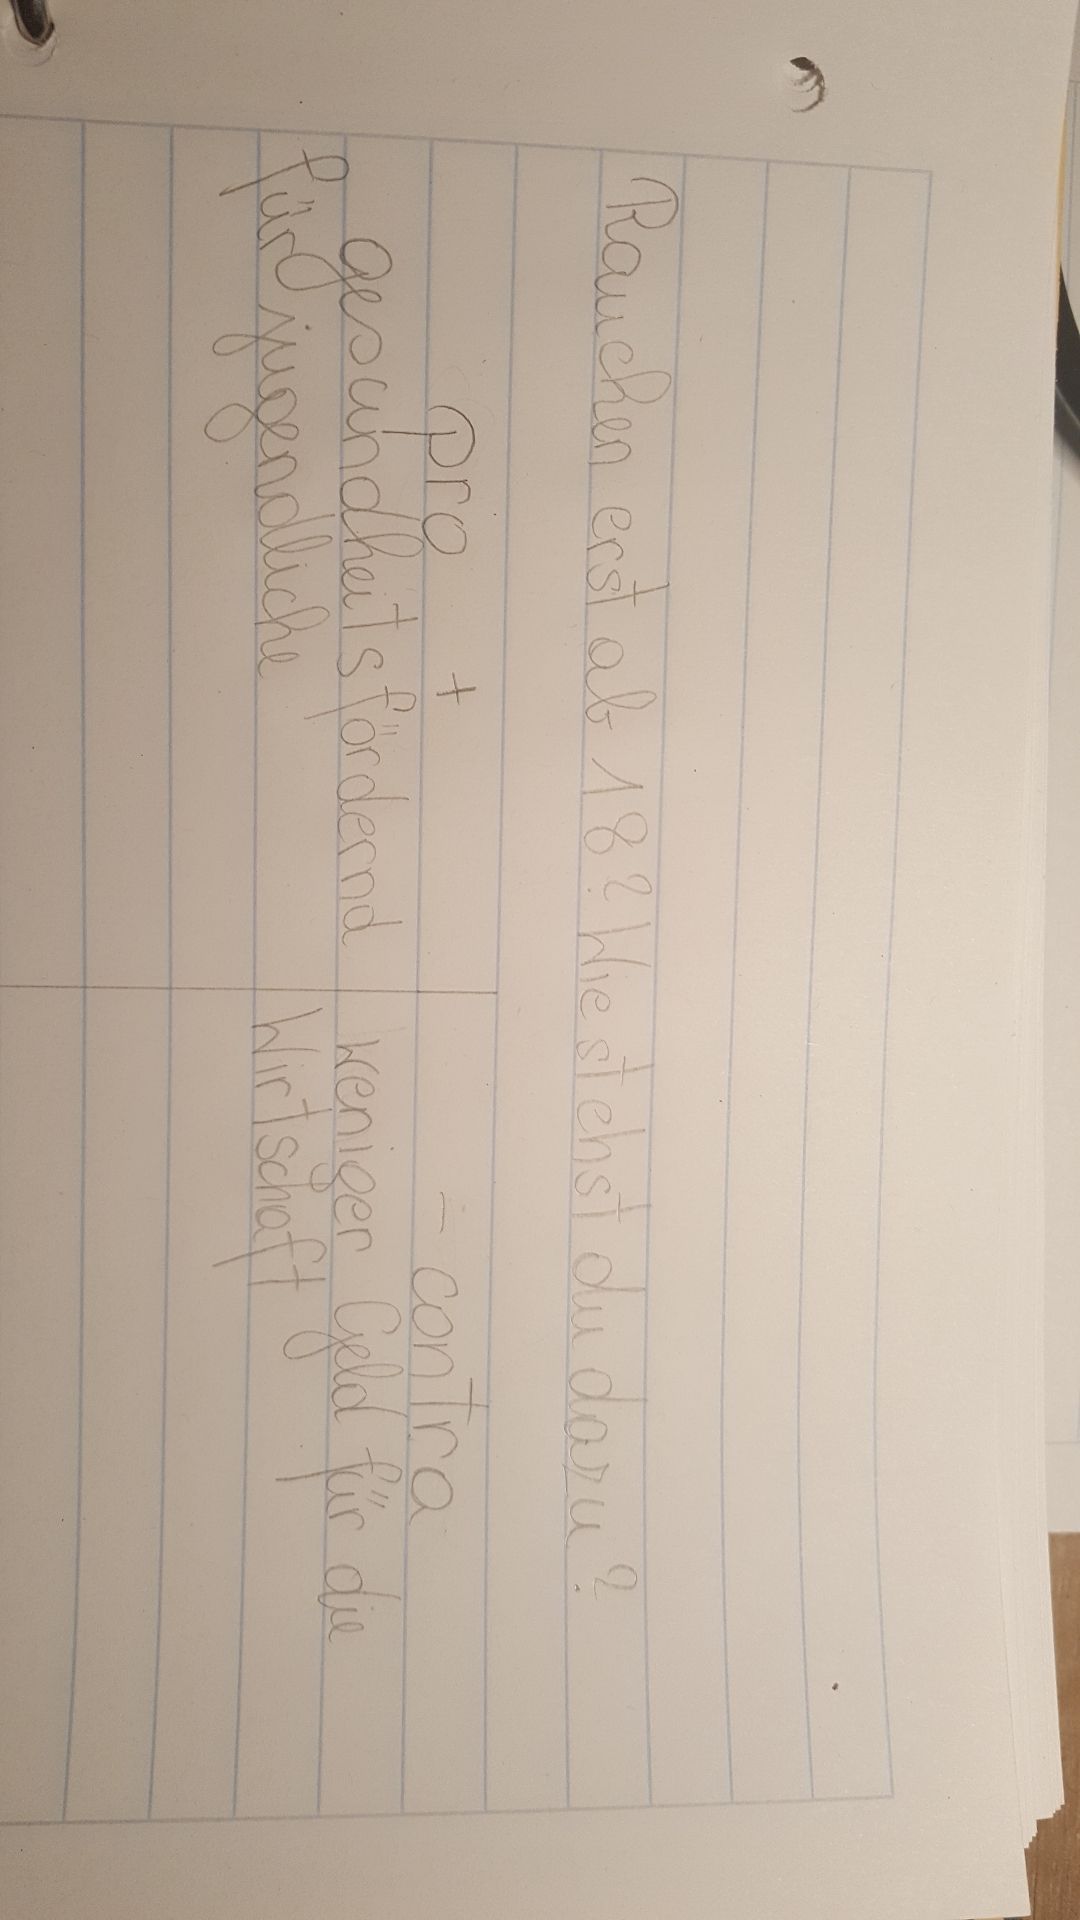 Rauchen erst ab 18? Wie stehst du dazu?
Pro +
- contra
gesundheitsfördernd
für jugendliche
weniger Geld für die
Wirtschaft